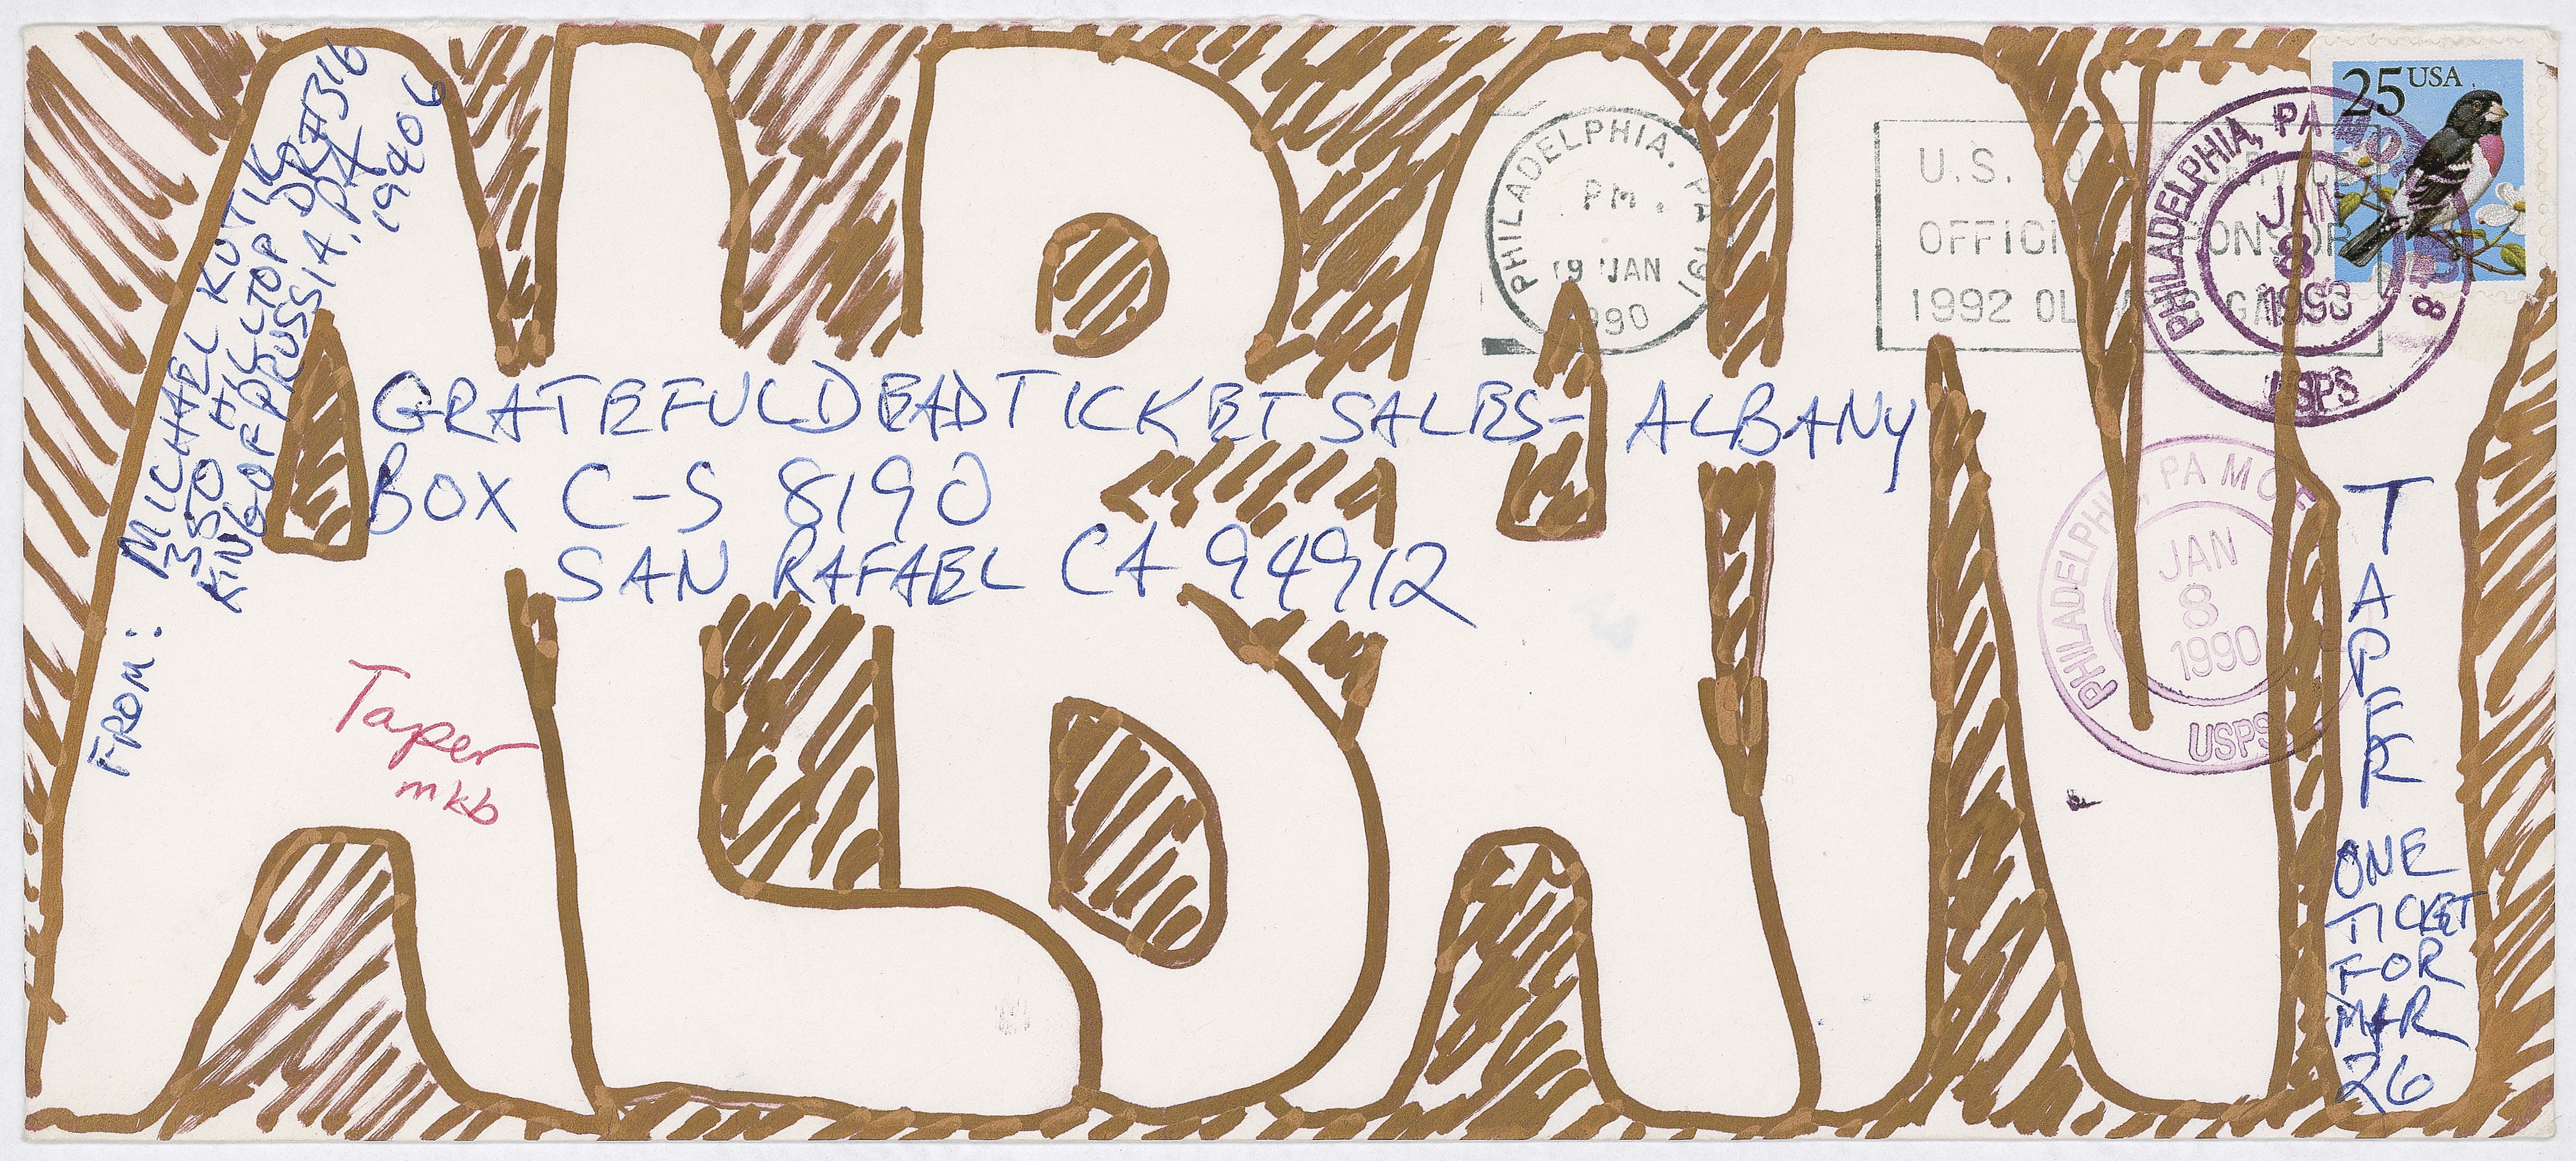 ALBANY
FROM: MICHAEL KUTIK
350 HILLTOP DR #316
KING OF PRUSSIA, PA
19406
GRATEFUL DEAD TICKET SALES- ALBANY
BOX C-S 8190
SAN RAFAEL CA 94912
Taper
mkb
PHILADELPHIA. PA 191
PM
19 JAN
1990
U.S.
OFFICI SPONSOR
1992 OL GAMES
25 USA
PHILADELPHIA, PA
JAN
8
1990
USPS
PHILADELPHIA, PA
JAN
8
1990
USPS
TAPER
ONE
TICKET
FOR
MAR
26